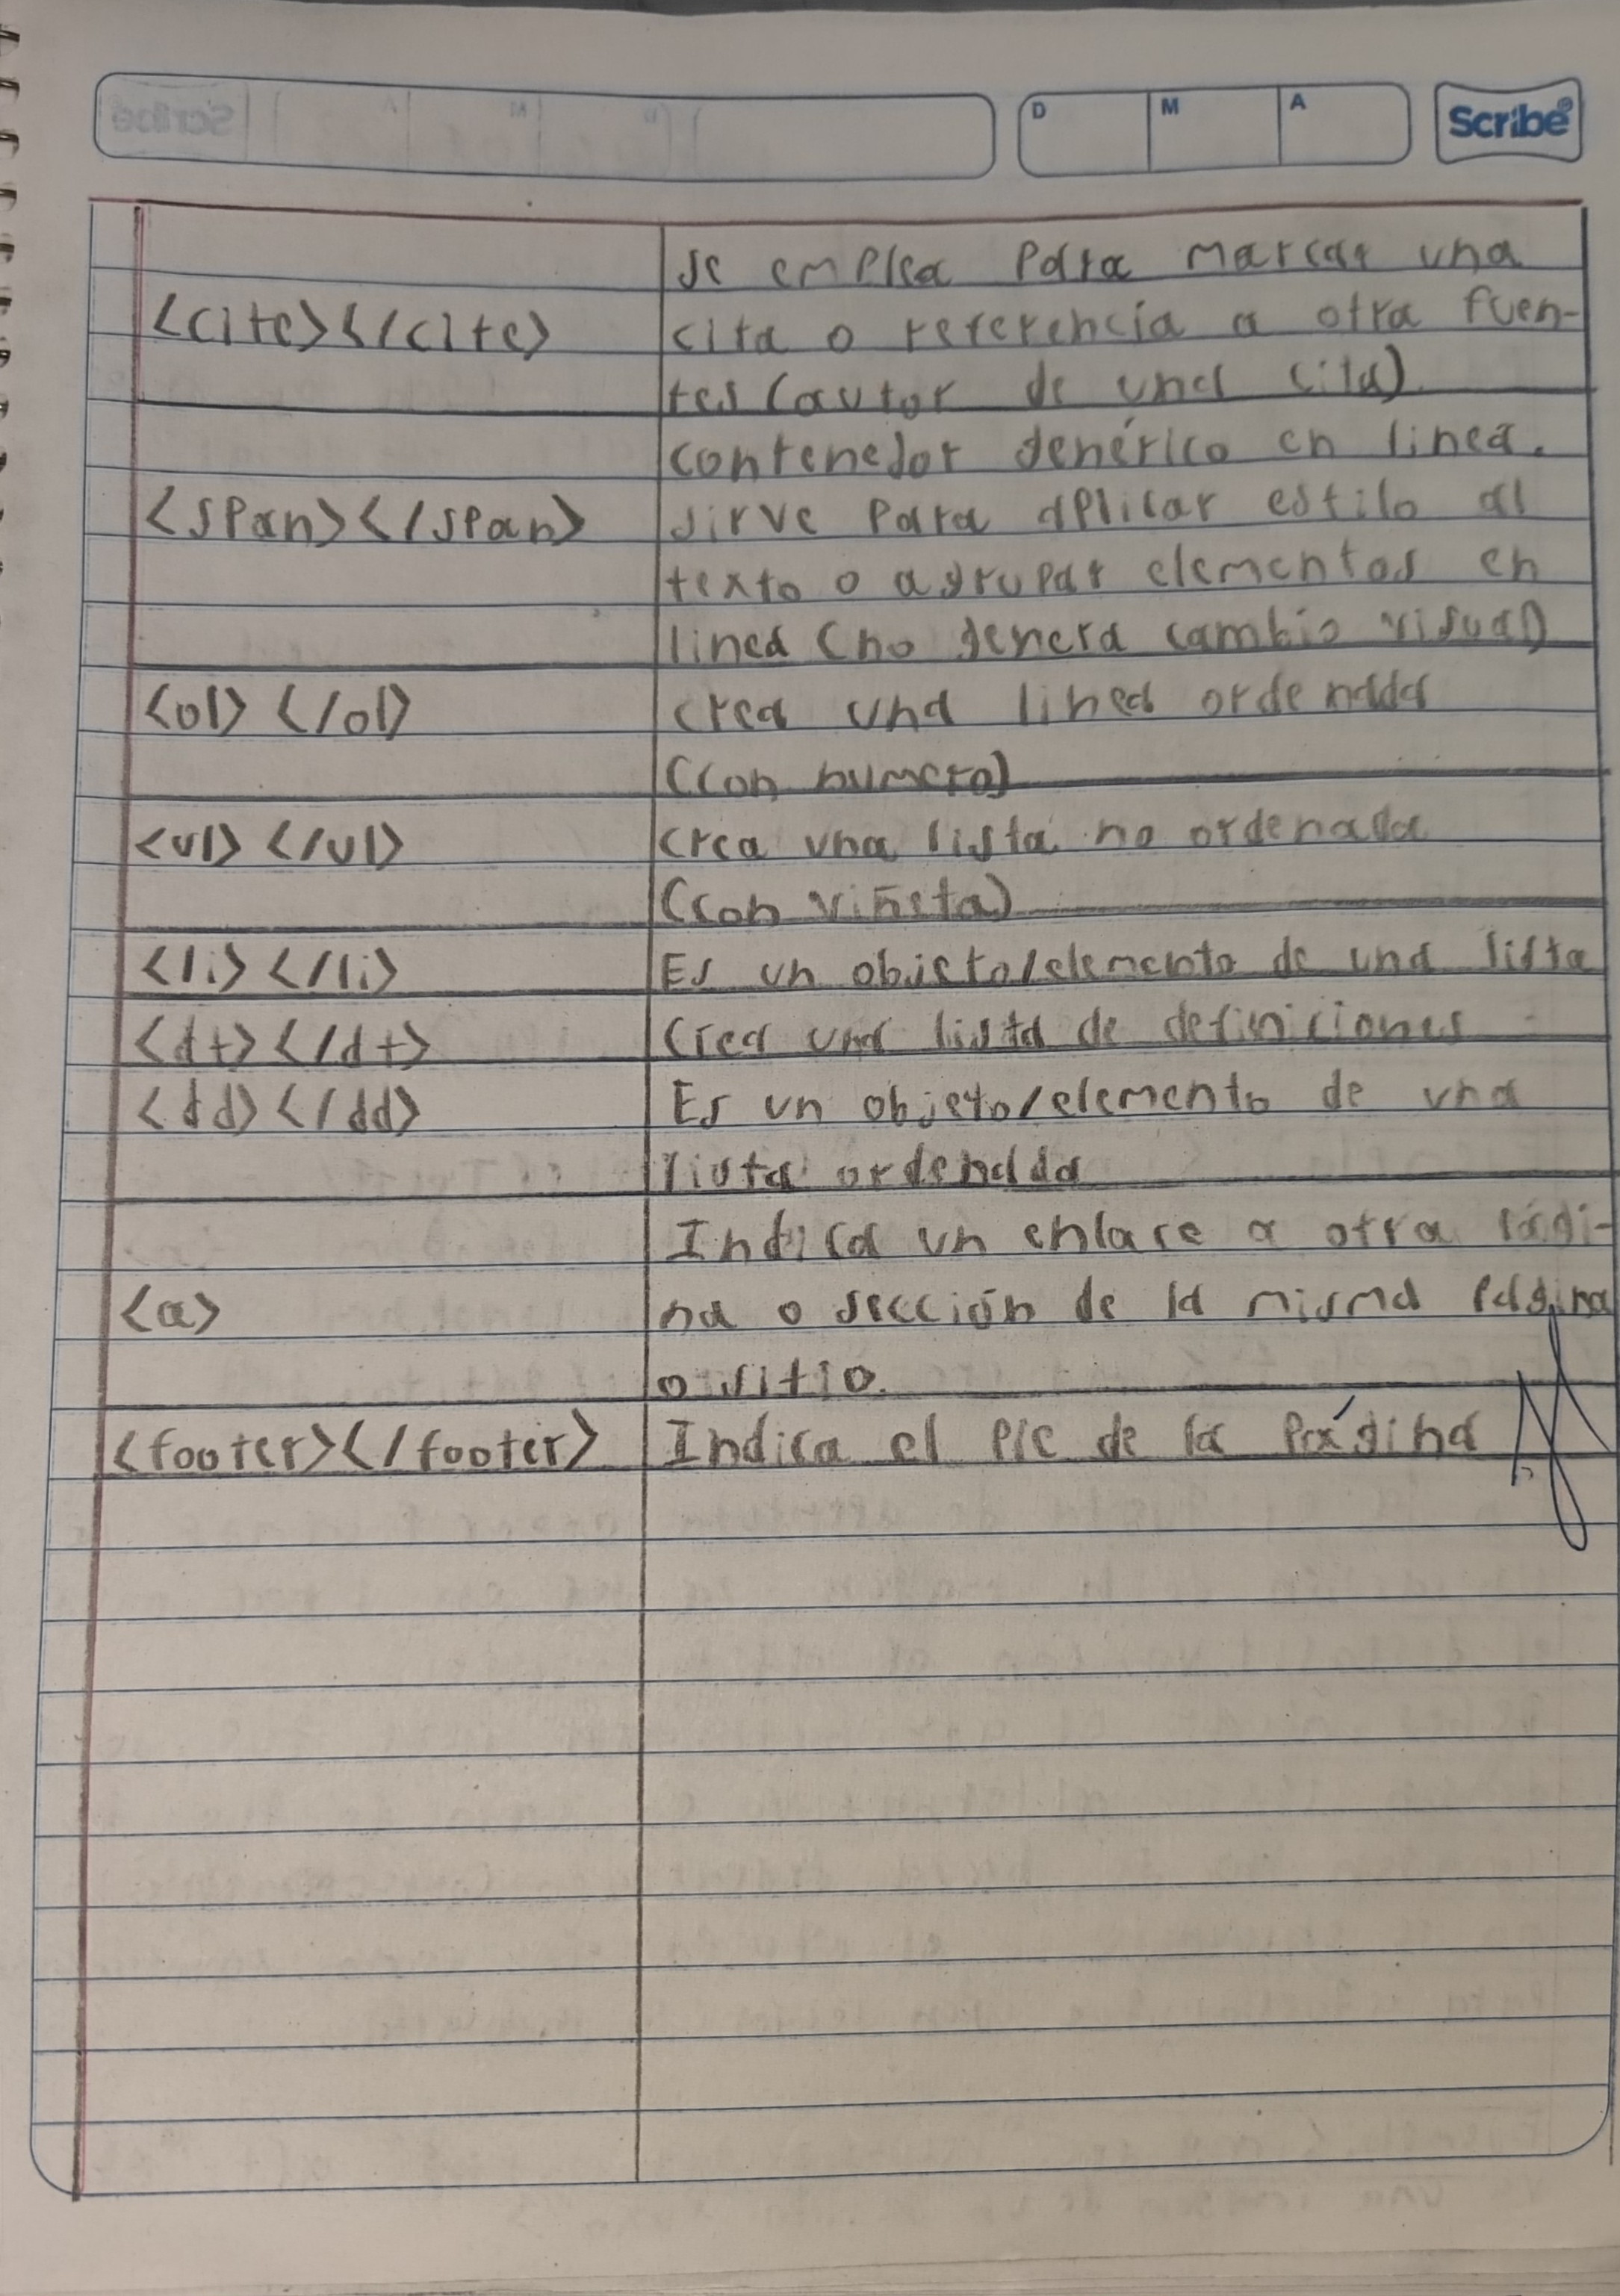 D M A Scribe
se emplea para marcar una
<cite></cite> cita o referencia a otra fuen-
tes (autor de una cita)
contenedor genérico en linea.
<span></span> sirve para aplicar estilo al
texto o agrupar elementos en
linea (no genera cambio visual)
<ol> </ol> crea una linea ordenada
(con numero)
<ul> </ul> crea una lista no ordenada
(con viñeta)
<li></li> Es un objeto/elemento de una lista
<dt></dt> Crea una lista de definiciones
<dd></dd> Es un objeto/elemento de una
lista ordenada
Indica un enlace a otra pági-
<a> na o sección de la misma página
o sitio.
<footer></footer> Indica el pie de la página